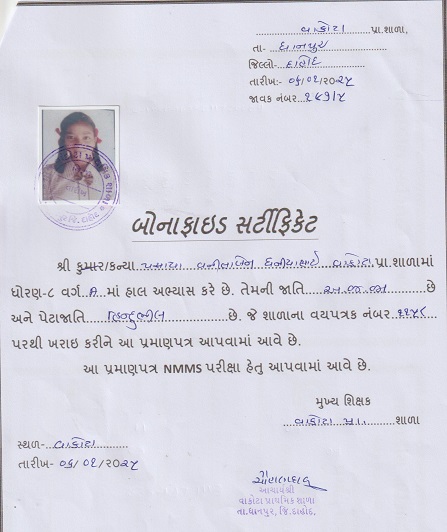 વાકોટા પ્રા.શાળા,
તા- ધાનપુર
જિલ્લો:- દાહોદ
તારીખ:- ૦૬/૦૧/૨૦૨૫
જાવક નંબર
બોનાફાઇડ સર્ટીફિકેટ
શ્રી કુમાર/કન્યા વનીતાબેન વાકોટા પ્રા.શાળામાં
ધોરણ-૮ વર્ગ A માં હાલ અભ્યાસ કરે છે. તેમની જાતિ અ.જ.જા છે
અને પેટાજાતિ હિન્દુ ભીલ છે. જે શાળાના વયપત્રક નંબર
પરથી ખરાઇ કરીને આ પ્રમાણપત્ર આપવામાં આવે છે.
આ પ્રમાણપત્ર NMMS પરીક્ષા હેતુ આપવામાં આવે છે.
મુખ્ય શિક્ષક
વાકોટા પ્રા. શાળા
સ્થળ- વાકોટા
તારીખ- ૦૬/૦૧/૨૦૨૫
આચાર્યશ્રી
વાકોટા પ્રાથમિક શાળા
તા.ધાનપુર, જિ.દાહોદ.